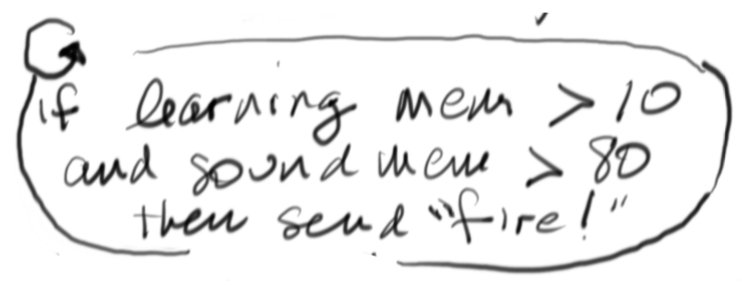 if learning mem > 10
and sound mem > 80
then send "fire!"